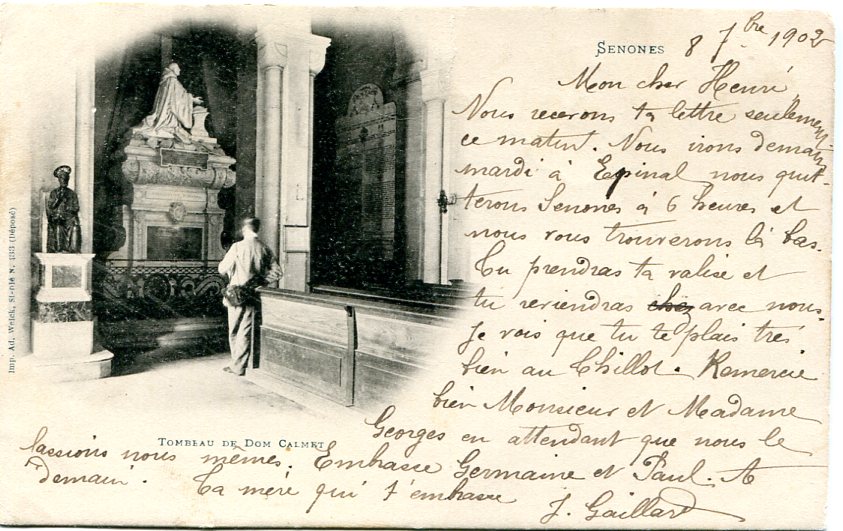 SENONES
8 7bre 1902
Mon cher Henri,
Nous recevons ta lettre seulement
ce matin. Nous irons demain
mardi à Epinal nous quit-
terons Senones à 6 heures et
nous vous trouverons là bas.
Tu prendras ta valise et
tu reviendras chez avec nous.
Je vois que tu te plais très
bien au Chillot. Remercie
bien Monsieur et Madame
Georges en attendant que nous le
fassions nous mêmes. Embrasse Germaine et Paul. A
demain. Ta mère qui t'embrasse
J. Gaillard
TOMBEAU DE DOM CALMET
Imp. Ad. Weick, St-Dié N. 133 (Déposé)